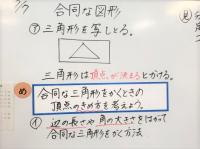 7/7
合同な図形
㋐三角形を写しとる。
三角形は頂点が決まるとかける。
め
合同な三角形をかくときの
頂点のきめ方を考えよう。
①辺の長さや角の大きさをはかって
合同な三角形をかく方法